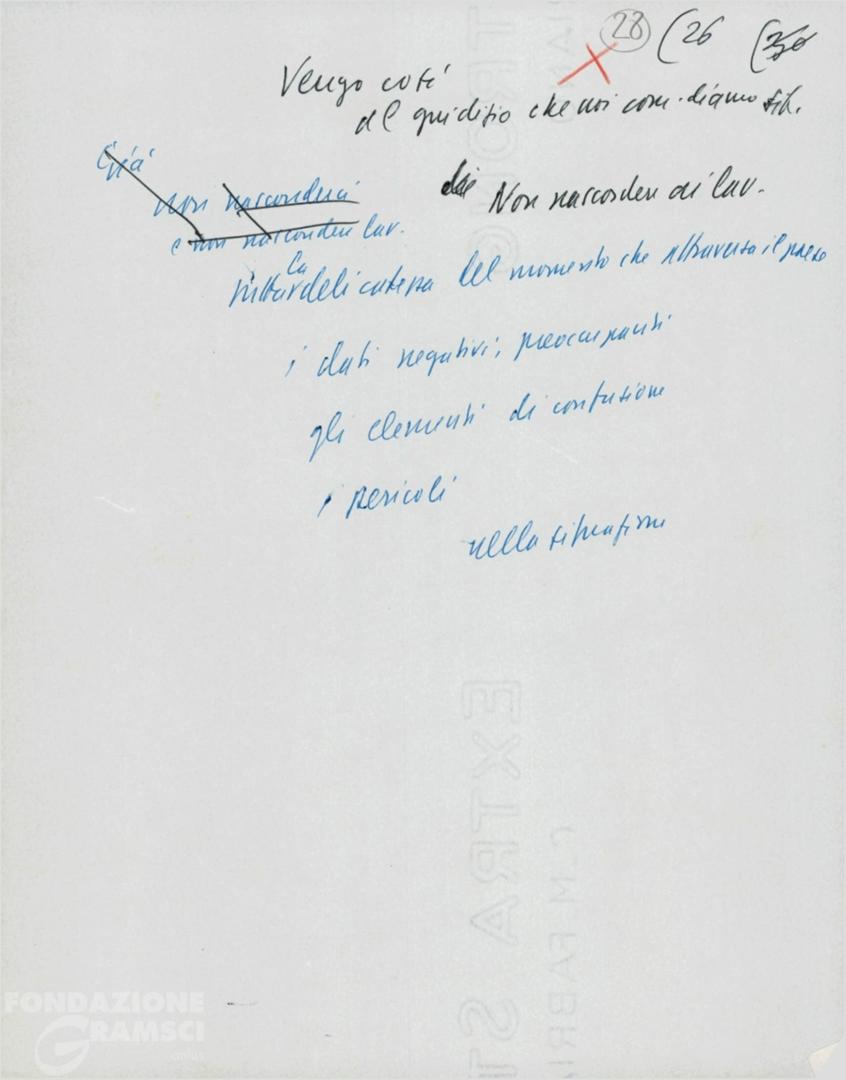 28 (26 (30
Vengo così
al giudizio che noi com. diamo sit.
Già
noi nasconderci
e non nascondere lav.
Non nascondere ai lav.
tutta la delicatezza del momento che attraversa il paese
i dati negativi, preoccupanti
gli elementi di confusione
i pericoli
nella situazione
EXTRA ST
C.M. FABRI
FONDAZIONE
GRAMSCI